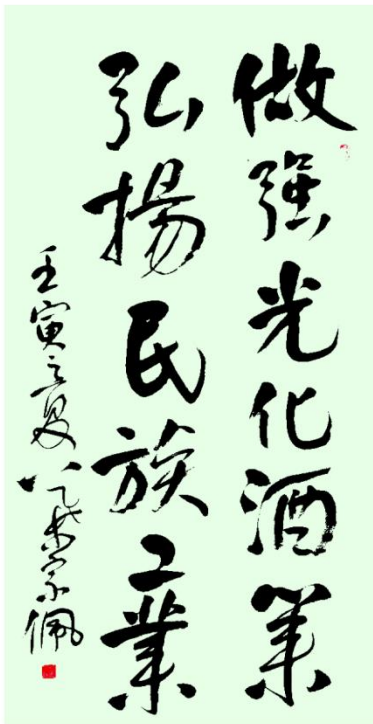 做强光化酒業
弘揚民族工業
壬寅之夏
宗佩